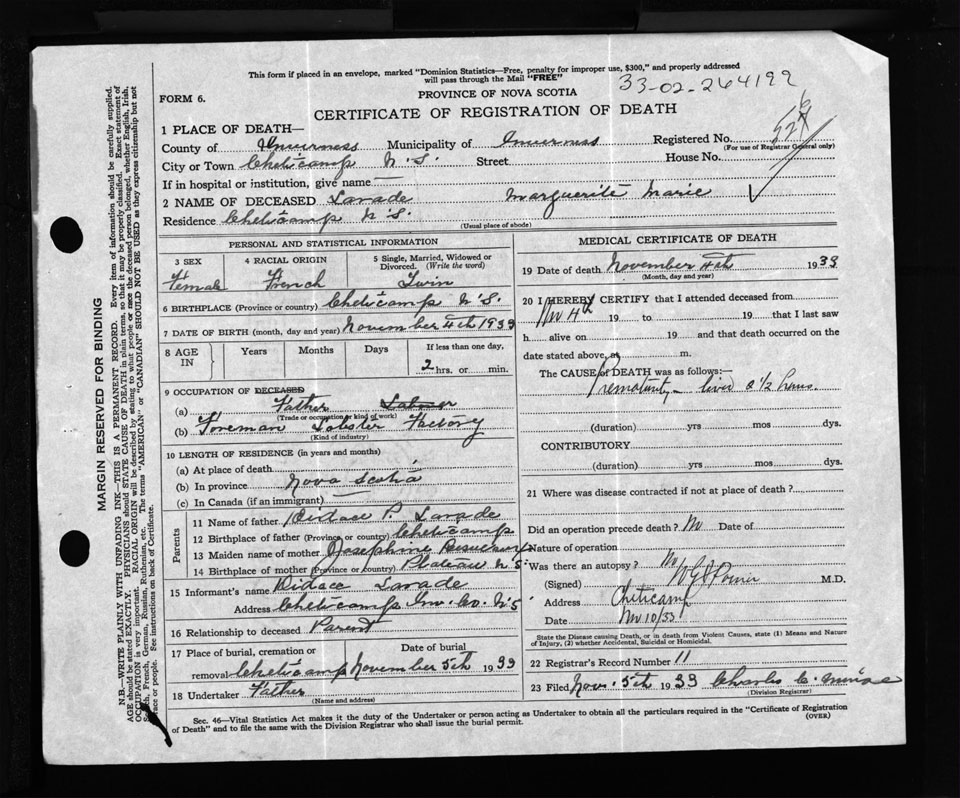 This form if placed in an envelope, marked "Dominion Statistics—Free, penalty for improper use, $300," and properly addressed
will pass through the Mail "FREE"
33-02-264199
FORM 6.
PROVINCE OF NOVA SCOTIA
CERTIFICATE OF REGISTRATION OF DEATH
1 PLACE OF DEATH—
County of Inverness Municipality of Inverness Registered No.
(For use of Registrar General only)
City or Town Cheticamp N.S. Street House No.
If in hospital or institution, give name
2 NAME OF DECEASED Lavade Marguerite Marie
Residence Cheticamp N.S.
(Usual place of abode)
PERSONAL AND STATISTICAL INFORMATION
3 SEX 4 RACIAL ORIGIN 5 Single, Married, Widowed or
Divorced. (Write the word)
Female French Twin
6 BIRTHPLACE (Province or country) Cheticamp N.S.
7 DATE OF BIRTH (month, day and year) November 4th 1933
8 AGE IN Years Months Days If less than one day,
2 hrs. or min.
9 OCCUPATION OF DECEASED
(a) Father Labour
(Trade or occupation or kind of work)
(b) Foreman Lobster Factory
(Kind of industry)
10 LENGTH OF RESIDENCE (in years and months)
(a) At place of death
(b) In province Nova Scotia
(c) In Canada (if an immigrant)
Parents
11 Name of father P. Lavade
12 Birthplace of father (Province or country) Cheticamp
13 Maiden name of mother Josephine
14 Birthplace of mother (Province or country) Plateau N.S.
15 Informant's name Lavade
Address Cheticamp Inv. Co. N.S
16 Relationship to deceased Parent
17 Place of burial, cremation or Date of burial
removal Cheticamp November 5th 1933
18 Undertaker Father
(Name and address)
MEDICAL CERTIFICATE OF DEATH
19 Date of death November 4th 1933
(Month, day and year)
20 I HEREBY CERTIFY that I attended deceased from
Nov 4th 19 to 19 that I last saw
h alive on 19 and that death occurred on the
date stated above, at m.
The CAUSE of DEATH was as follows:—
Prematurity – lived 2 1/2 hours.
(duration) yrs mos dys.
CONTRIBUTORY
(duration) yrs mos dys.
21 Where was disease contracted if not at place of death?
Did an operation precede death? No Date of
Nature of operation
Was there an autopsy? No
(Signed) M.D.
Address Cheticamp
Date Nov 10/33
State the Disease causing Death, or in death from Violent Causes, state (1) Means and Nature
of Injury, (2) whether Accidental, Suicidal or Homicidal.
22 Registrar's Record Number 11
23 Filed Nov. 5th 1933 Charles C.
(Division Registrar)
Sec. 46—Vital Statistics Act makes it the duty of the Undertaker or person acting as Undertaker to obtain all the particulars required in the "Certificate of Registration
of Death" and to file the same with the Division Registrar who shall issue the burial permit. (OVER)
MARGIN RESERVED FOR BINDING
N.B.—WRITE PLAINLY WITH UNFADING INK—THIS IS A PERMANENT RECORD. Every item of information should be carefully supplied.
AGE should be stated EXACTLY. PHYSICIANS should STATE CAUSE OF DEATH in plain terms, so that it may be properly classified. Exact statement of
OCCUPATION is very important. RACIAL ORIGIN will be described by stating to what people or race the deceased person belonged, whether English, Irish,
Scotch, French, German, Russian, Ruthenian, etc. The terms "AMERICAN" or "CANADIAN" SHOULD NOT BE USED as they express citizenship but not
race or people. See instructions on back of Certificate.